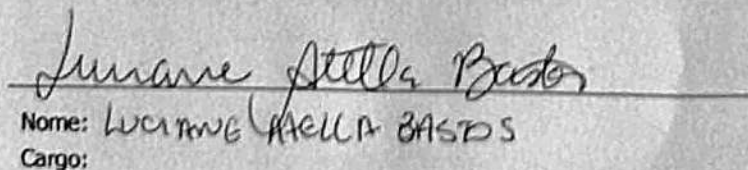 Luciane Atella Bastos
Nome: LUCIANE ATELLA BASTOS
Cargo: